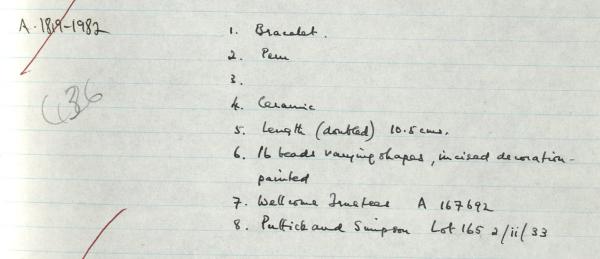 A. 1819-1982
1. Bracelet.
2. Peru
636
3.
4. Ceramic
5. Length (doubled) 10.5 cms.
6. 16 beads varying shapes, incised decoration-
painted
7. Wellcome Trustees A 167692
8. Puttick and Simpson Lot 165 2/ii/33